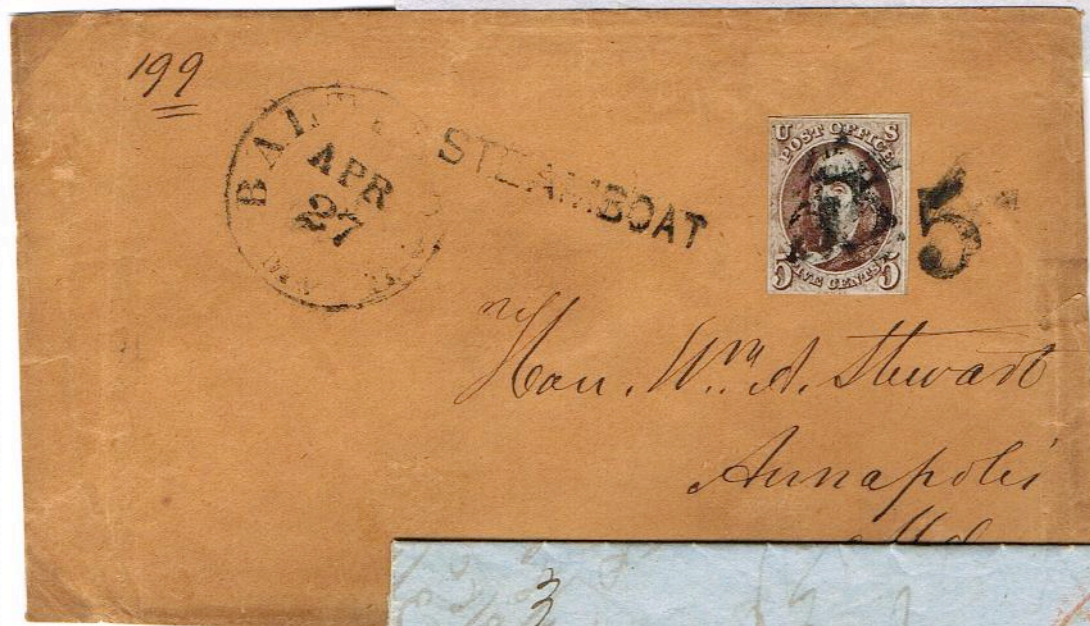 199
BALT
APR
27
STEAMBOAT
U S
POST OFFICE
5 FIVE CENTS 5
5
Hon. Wm. A. Stewart
Annapolis
Md
3